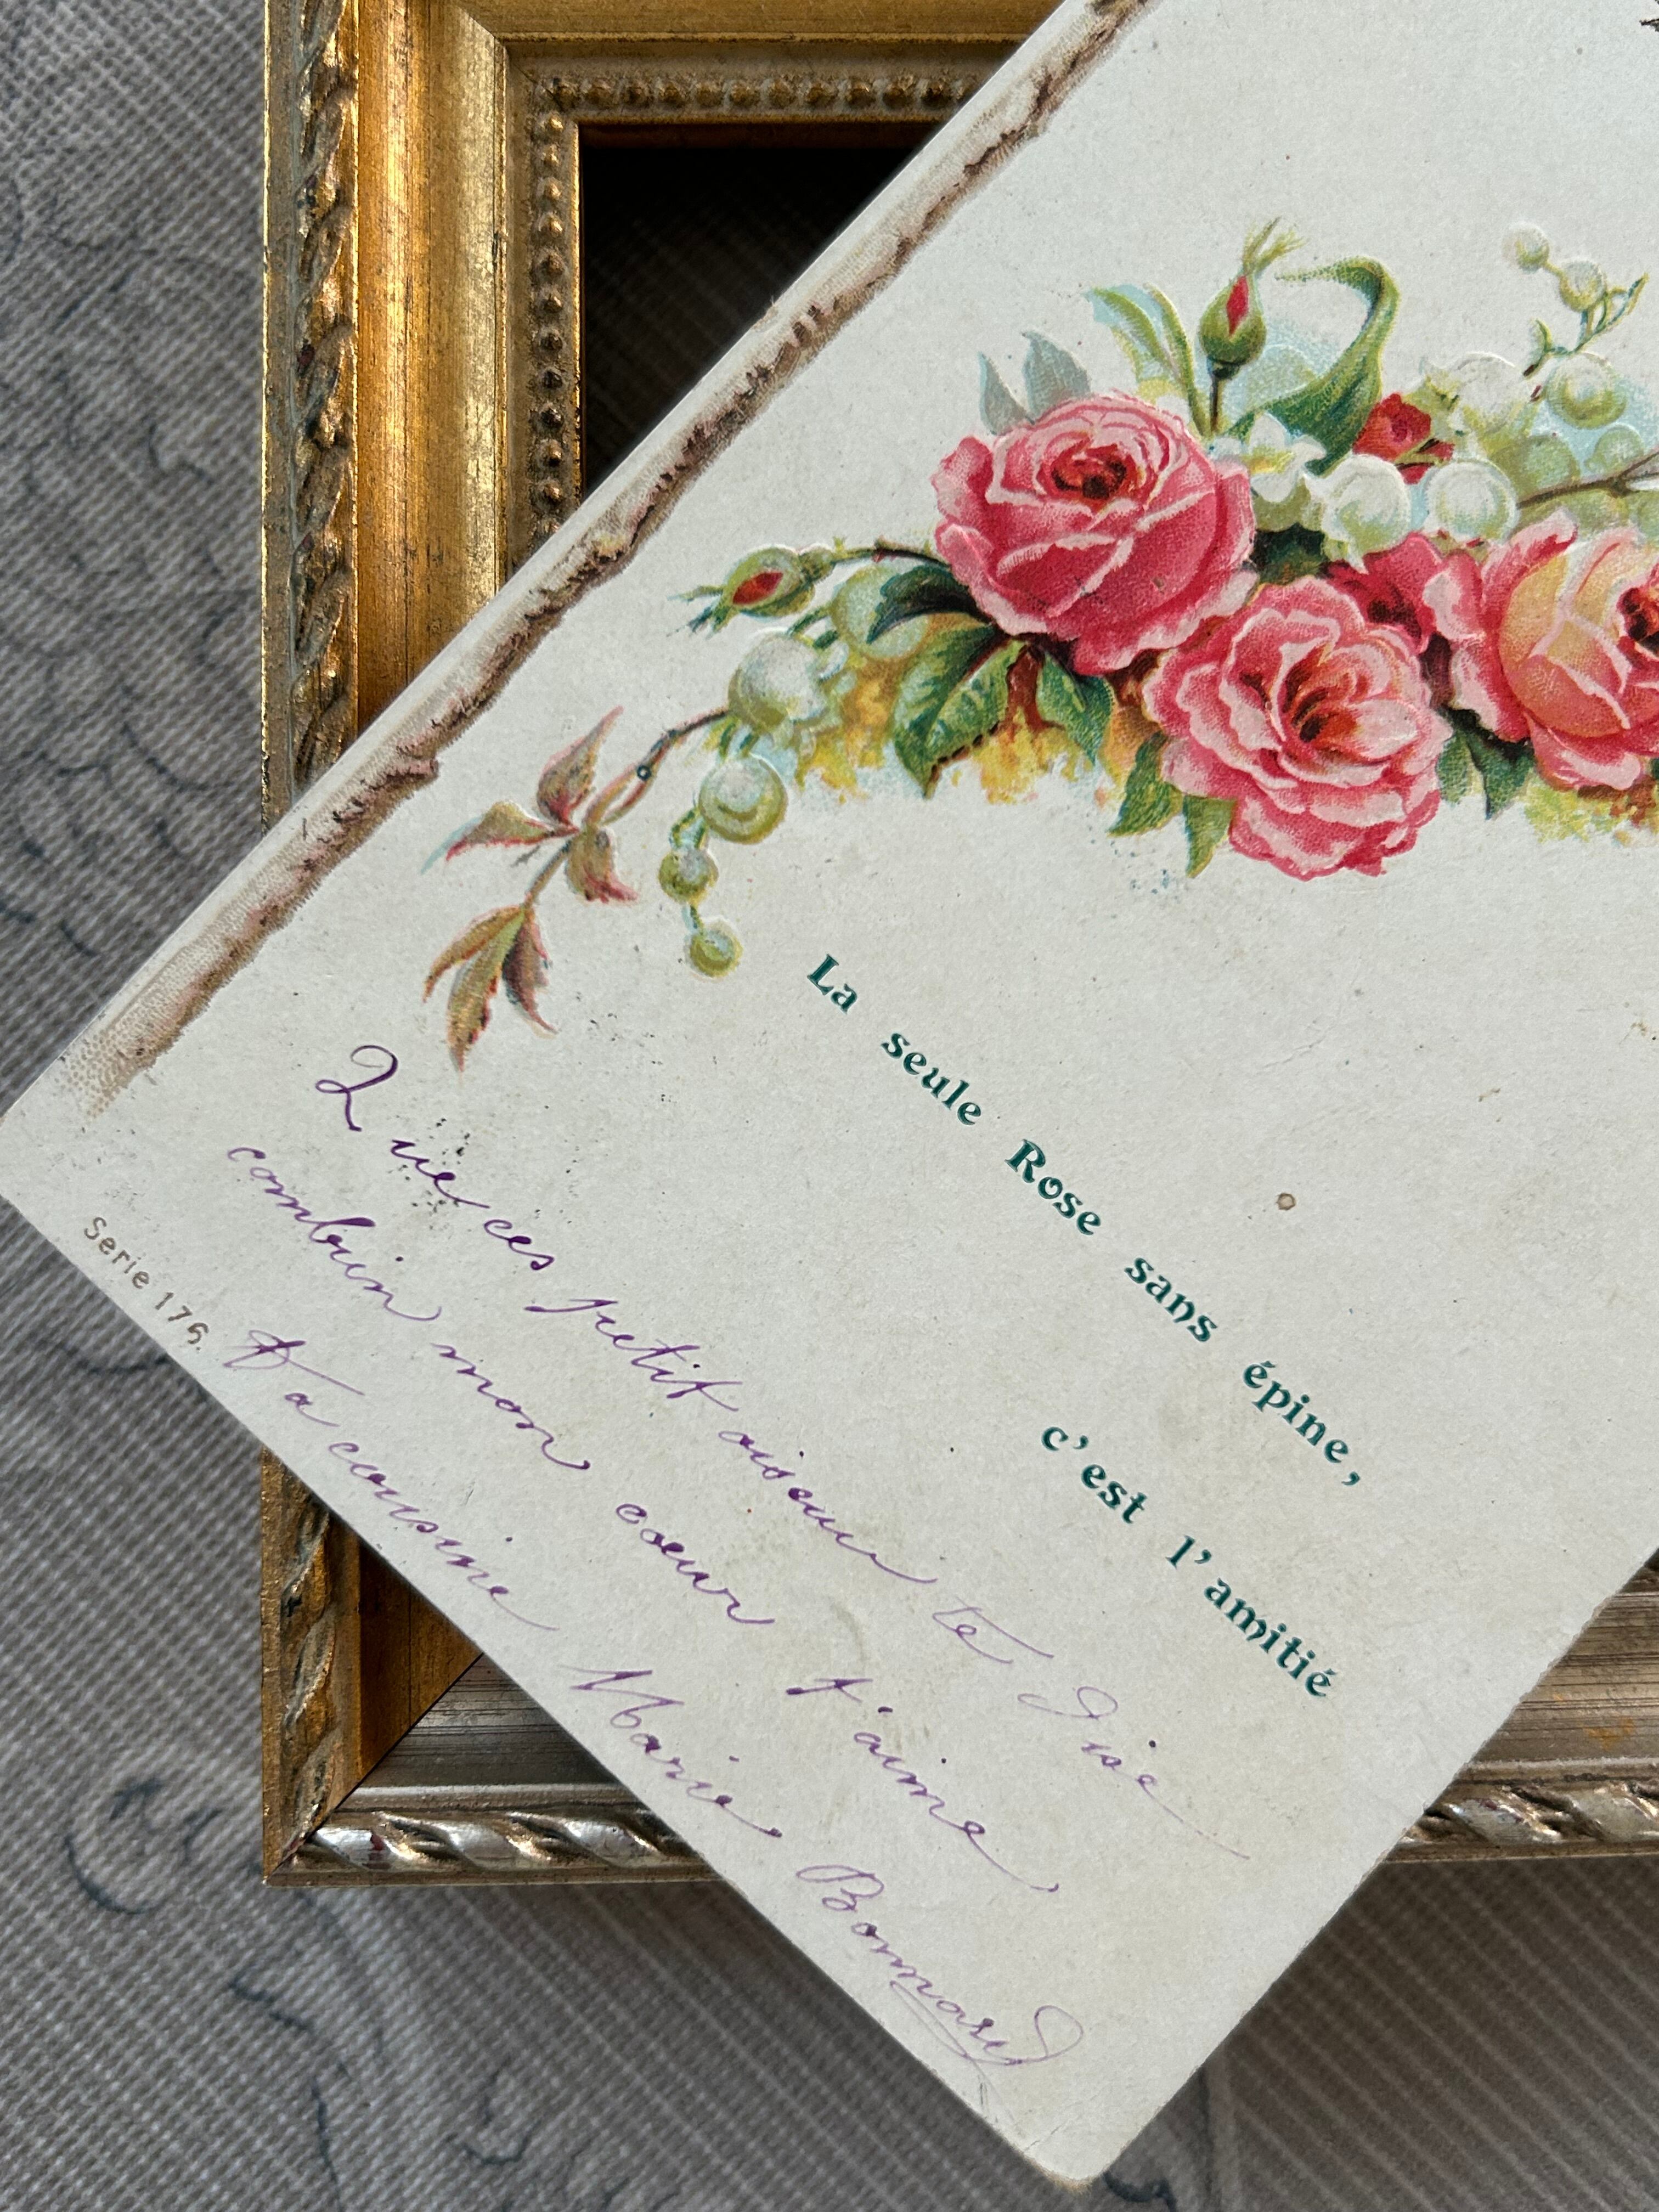 La seule Rose sans épine,
c'est l'amitié
Que ces petit oiseau te dise
combien mon cœur t'aime,
Ta cousine Marie Bonnard
Serie 176.